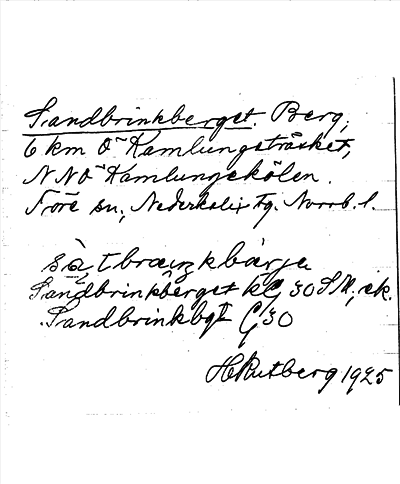 Sandbrinkberget. Berg,
6 km O Kamlungeträsket,
NNO Kamlungekölen.
Töre sn, Nederkalix tg. Norrb. l.
Sandbrinkberget kG 30 SM, ek.
Sandbrinkbgt G 30
H Rutberg 1925